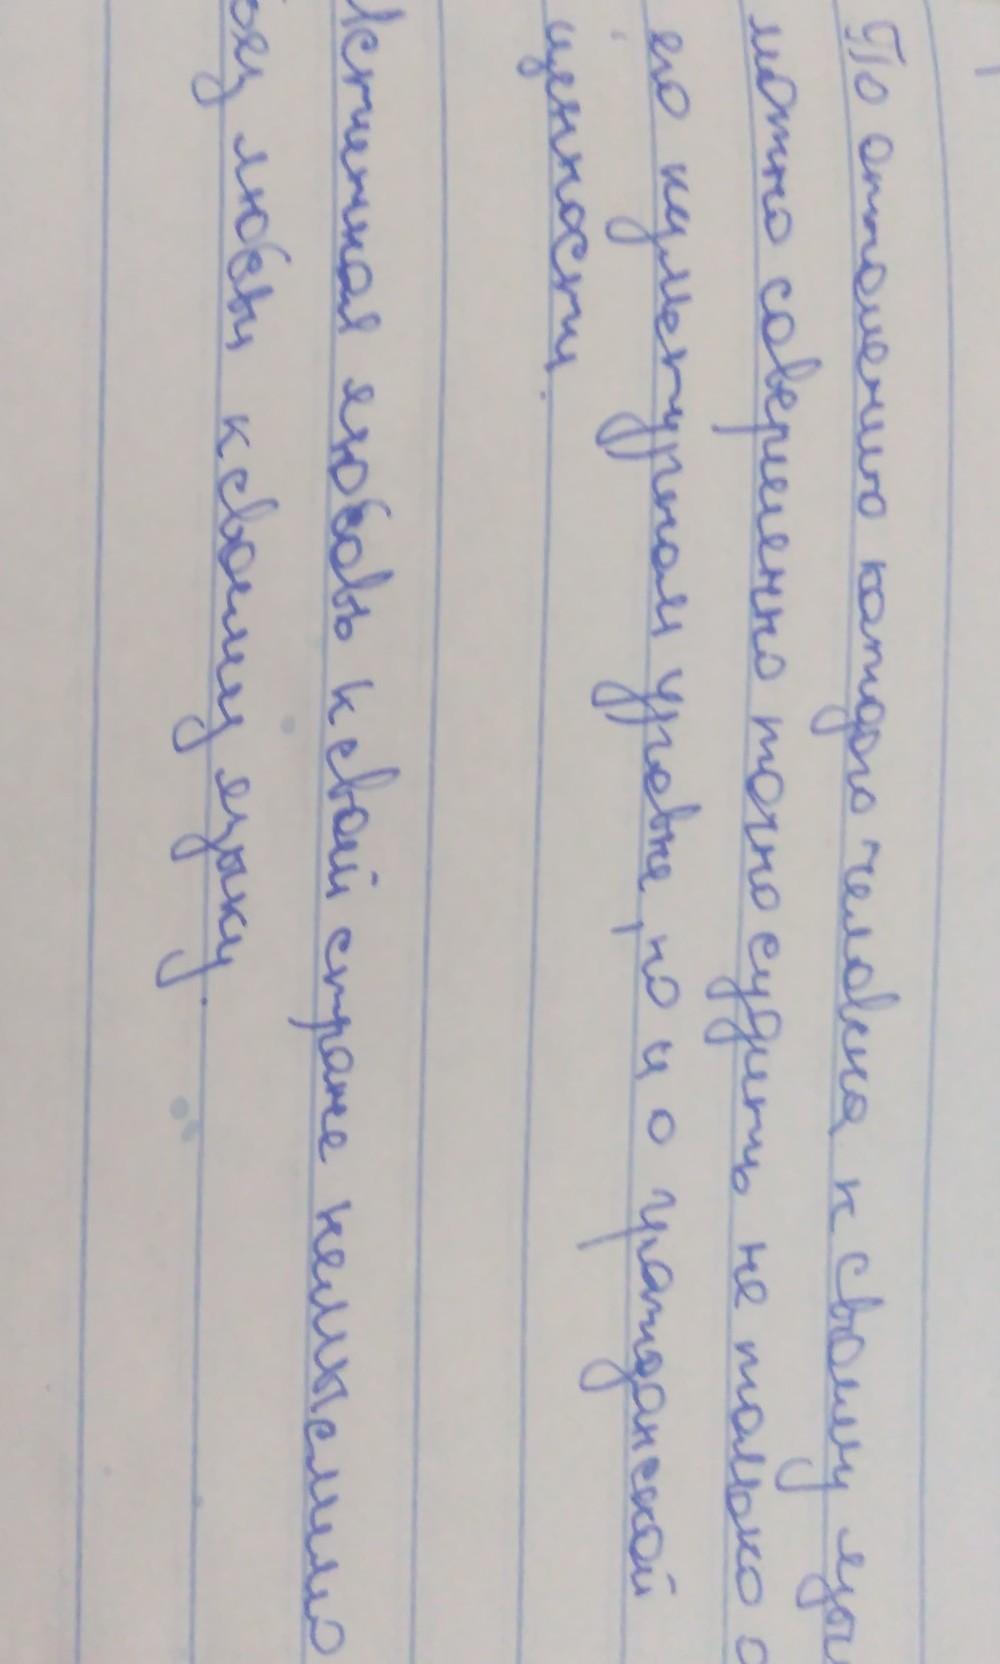 По отношению каждого человека к своему язы
можно совершенно точно судить не только о
его культурном уровне, но и о гражданской
ценности.
Истинная любовь к своей стране немыслимо
без любви к своему языку.